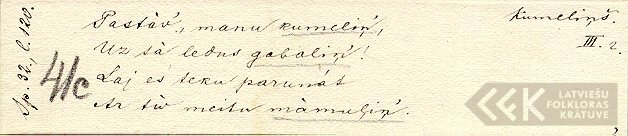 Pastāv', manu kumeliņ',
Uz šā ledus gabaliņ'!
Laj es teku parunāt
Ar tiv meitu māmuliņ'.
Kumeliņš.
III. 2.
Sp. 32., l. 120.
41c
LATVIEŠU
FOLKLORAS
KRĀTUVE